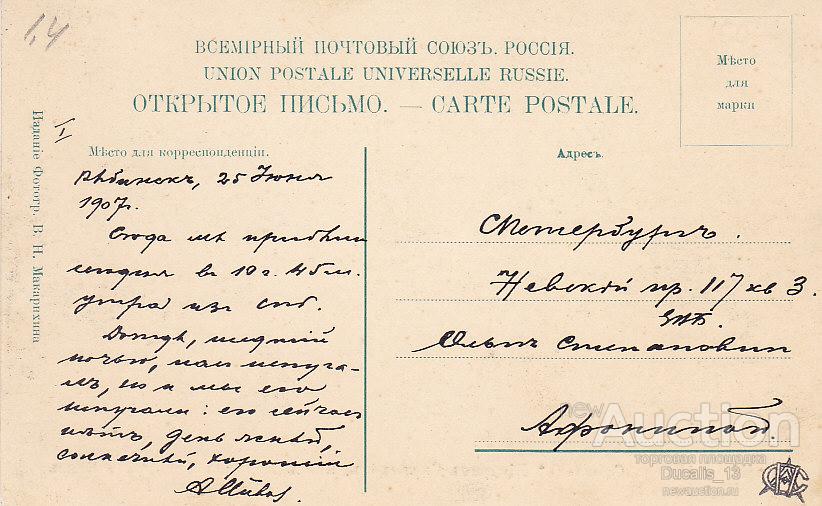 1.4
ВСЕМІРНЫЙ ПОЧТОВЫЙ СОЮЗЪ. РОССІЯ.
UNION POSTALE UNIVERSELLE RUSSIE.
ОТКРЫТОЕ ПИСЬМО. — CARTE POSTALE.
Мѣсто
для
марки
Изданіе Фотогр. В. Н. Макарихина
Мѣсто для корреспонденціи.
Рыбинскъ, 25 Іюня
1907 г.
Сюда мы прибыли
сегодня в 10 ч. 45 м.
утра из Спб.
Дождь, шедшій
ночью, нас испуга-
лъ, но и мы его
испугали: его сейчас
нѣтъ, день ясный,
солнечный, хорошій
Адресъ.
СПетербургъ.
Невскій пр. 117 кв 3.
ЕВБ.
Ольгѣ Степановнѣ
Афониной.
newAuction
торговая площадка
Ducalis_13
newauction.ru